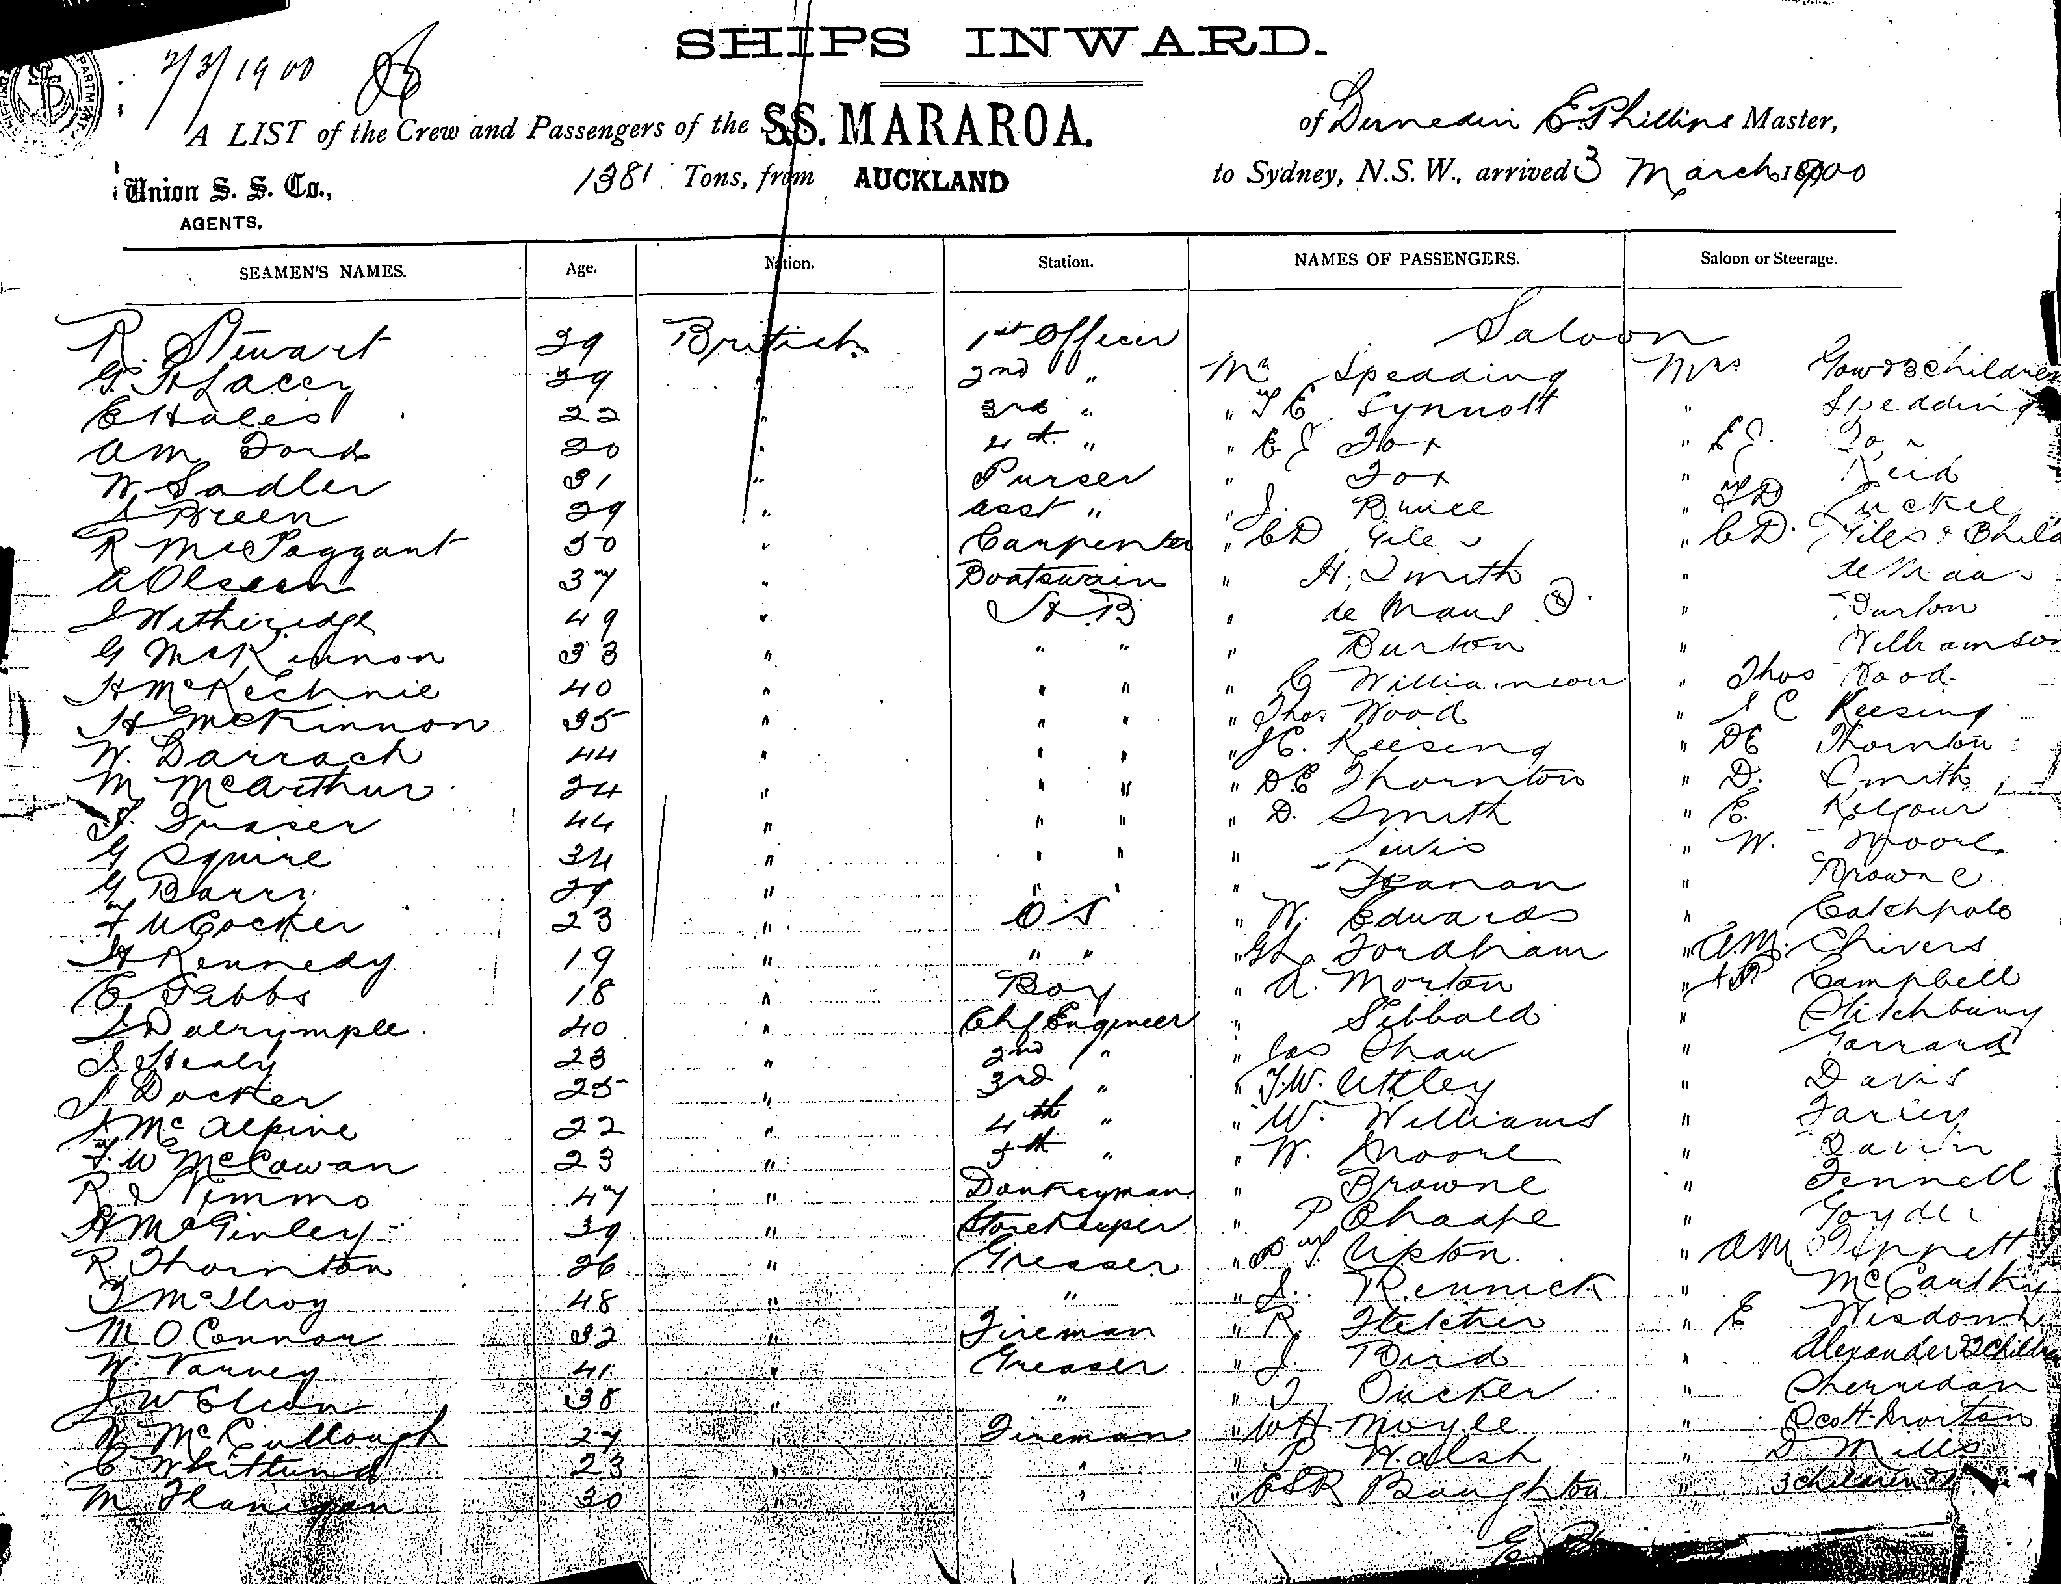 SHIPS INWARD.
2/3/1900
A LIST of the Crew and Passengers of the SS. MARAROA. of Dunedin E. Phillips Master,
Union S. S. Co., 1381 Tons, from AUCKLAND to Sydney, N.S.W., arrived 3 March 1900
AGENTS.
SEAMEN'S NAMES. Age. Nation. Station. NAMES OF PASSENGERS. Saloon or Steerage.
R. Stewart 39 British 1st Officer Saloon
G. H Lacey 29 " 2nd " Mr Spedding Mrs Gow & 3 children
E Hales 22 " 3rd " " T E Synnott " Spedding
A M Ford 20 " 4th " " E J Fox " E J. Fox
W. Sadler 31 " Purser " Fox " Reid
Breen 29 " asst " " J. Bruce " T D Tuckey
R McTaggart 50 " Carpenter " C D Giles " C D. Giles & Child
A Olseen 37 " Boatswain " H. Smith " de Maus
J Witheridge 49 " A B " de Maus " Burton
G McKinnon 33 " " " " Burton " Williamson
H McKechnie 40 " " " " C Williamson " Thos Wood
H McKinnon 35 " " " " Thos Wood " J C Keesing
W. Darrach 44 " " " " J C. Keesing " D E Thornton
M McArthur 24 " " " " D E Thornton " D. Smith
J. Fraser 44 " " " " D. Smith " E. Kilgour
G Squire 34 " " " " " W. Moore
G Barry 29 " " " " " Browne
F W Cocker 23 " O S " W. Edwards " Catchpole
H Kennedy 19 " " " " G L Fordham " A M. Chivers
E. Tibbs 18 " Boy " A. Morton " Campbell
J Dalrymple 40 " Chf Engineer " Sibbald " Stitchbury
J Healy 23 " 2nd " " Jas Shaw " Garrard
J Docker 25 " 3rd " " T. W. Uttley " Davis
J McAlpine 22 " 4th " " W. Williams " Farley
F. W McCowan 23 " 5th " " W. Moore " Davin
R Nimmo 47 " Donkeyman " Browne " Fennell
H McGinley 39 " Storekeeper " P Sharpe " Goyder
R. Thornton 26 " Greaser " Upton " A M Tippett
T McIlroy 48 " " " J. Rennick " McCaulky
M O Connor 32 " Fireman " R. Fletcher " E Wisdom
W. Varney 41 " Greaser " J. Bird " Alexander & 2 Children
J W Elson 38 " " " T Tucker " Sherridan
W McCullough 27 " Fireman " W H Moyle " Scott-Morton
C Whitland 23 " " " P. Walsh " D Mills
M Flanigan 30 " " " E S R Boughton " 3 children